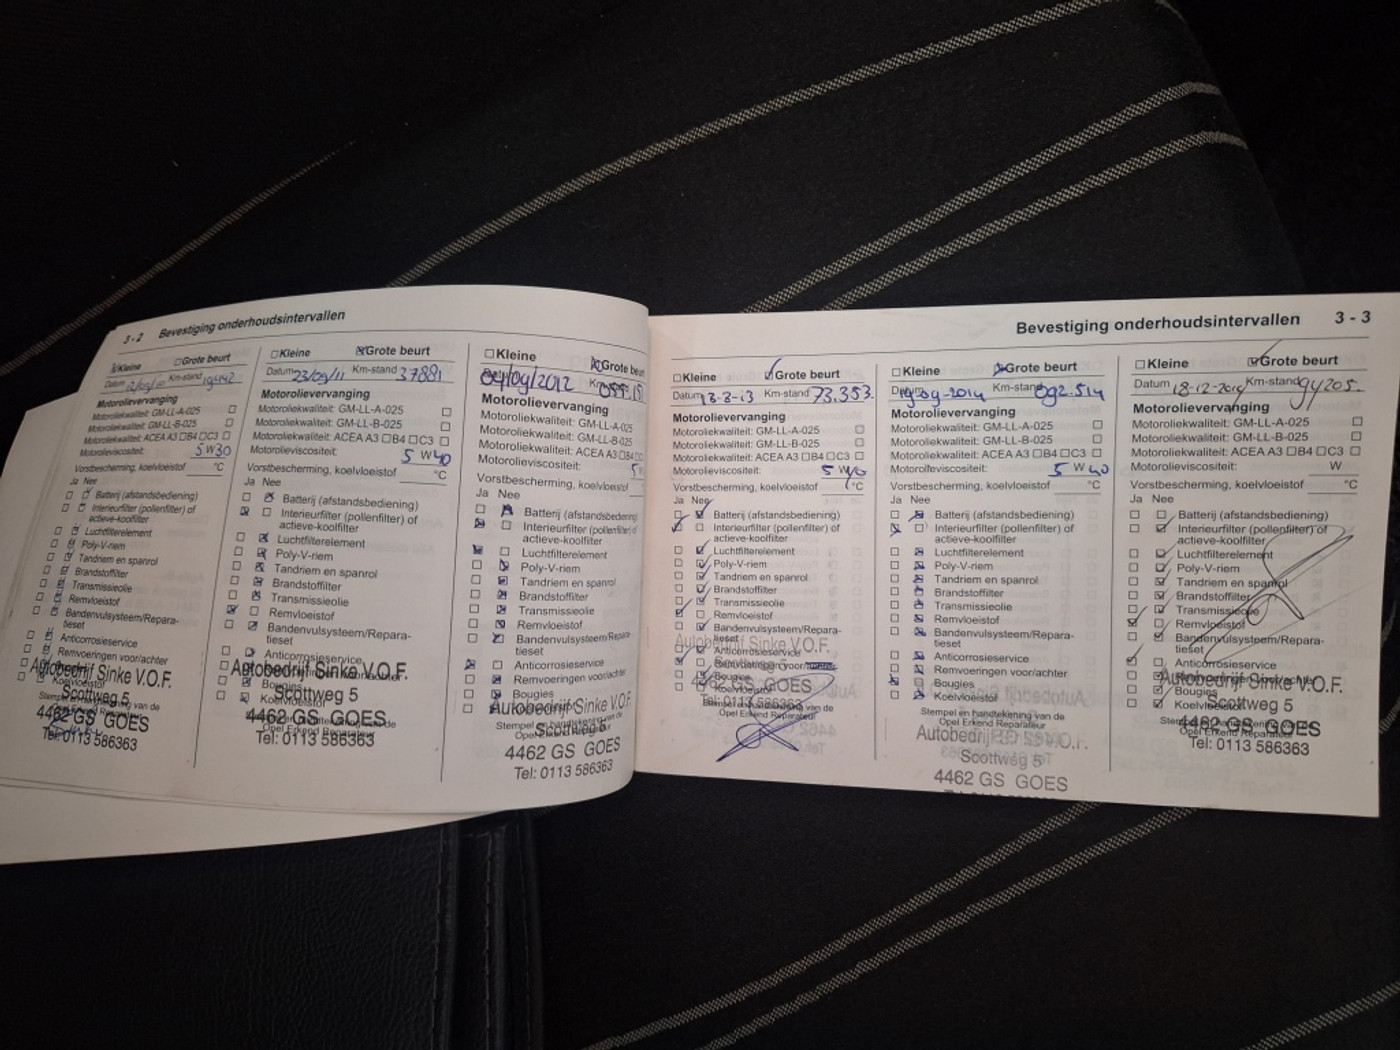 3 - 2 Bevestiging onderhoudsintervallen
Kleine Grote beurt
Datum Km-stand
Motorolievervanging
Motoroliekwaliteit: GM-LL-A-025
Motoroliekwaliteit: GM-LL-B-025
Motoroliekwaliteit: ACEA A3 B4 C3
Motorolieviscositeit: 5 W 30
Vorstbescherming, koelvloeistof °C
Ja Nee
Batterij (afstandsbediening)
Interieurfilter (pollenfilter) of
actieve-koolfilter
Luchtfilterelement
Poly-V-riem
Tandriem en spanrol
Brandstoffilter
Transmissieolie
Remvloeistof
Bandenvulsysteem/Repara-
tieset
Anticorrosieservice
Remvoeringen voor/achter
Koelvloeistof
Autobedrijf Sinke V.O.F.
Scottweg 5
4462 GS GOES
Tel: 0113 586363
Kleine Grote beurt
Datum 23/09/11 Km-stand 37881
Motorolievervanging
Motoroliekwaliteit: GM-LL-A-025
Motoroliekwaliteit: GM-LL-B-025
Motoroliekwaliteit: ACEA A3 B4 C3
Motorolieviscositeit: 5 W 40
Vorstbescherming, koelvloeistof °C
Ja Nee
Batterij (afstandsbediening)
Interieurfilter (pollenfilter) of
actieve-koolfilter
Luchtfilterelement
Poly-V-riem
Tandriem en spanrol
Brandstoffilter
Transmissieolie
Remvloeistof
Bandenvulsysteem/Repara-
tieset
Anticorrosieservice
Bougies
Koelvloeistof
Autobedrijf Sinke V.O.F.
Scottweg 5
4462 GS GOES
Opel Erkend Reparateur
Tel: 0113 586363
Kleine Grote beurt
04/09/2012
Motorolievervanging
Motoroliekwaliteit: GM-LL-A-025
Motoroliekwaliteit: GM-LL-B-025
Motoroliekwaliteit: ACEA A3 B4
Motorolieviscositeit: 5
Vorstbescherming, koelvloeistof
Ja Nee
Batterij (afstandsbediening)
Interieurfilter (pollenfilter) of
actieve-koolfilter
Luchtfilterelement
Poly-V-riem
Tandriem en spanrol
Brandstoffilter
Transmissieolie
Remvloeistof
Bandenvulsysteem/Repara-
tieset
Anticorrosieservice
Remvoeringen voor/achter
Bougies
Autobedrijf Sinke V.O.F.
Scottweg 5
4462 GS GOES
Tel: 0113 586363
Bevestiging onderhoudsintervallen 3 - 3
Kleine Grote beurt
Datum Km-stand 73.353
Motorolievervanging
Motoroliekwaliteit: GM-LL-A-025
Motoroliekwaliteit: GM-LL-B-025
Motoroliekwaliteit: ACEA A3 B4 C3
Motorolieviscositeit: 5 W
Vorstbescherming, koelvloeistof °C
Ja Nee
Batterij (afstandsbediening)
Interieurfilter (pollenfilter) of
actieve-koolfilter
Luchtfilterelement
Poly-V-riem
Tandriem en spanrol
Brandstoffilter
Transmissieolie
Remvloeistof
Bandenvulsysteem/Repara-
tieset
Anticorrosieservice
Remvoeringen voor/
Bougies
Koelvloeistof
4462 GS GOES
Tel: 0113 586363
Opel Erkend Reparateur
Kleine Grote beurt
Datum Km-stand 092.514
Motorolievervanging
Motoroliekwaliteit: GM-LL-A-025
Motoroliekwaliteit: GM-LL-B-025
Motoroliekwaliteit: ACEA A3 B4 C3
Motorolieviscositeit: 5 W 40
Vorstbescherming, koelvloeistof °C
Ja Nee
Batterij (afstandsbediening)
Interieurfilter (pollenfilter) of
actieve-koolfilter
Luchtfilterelement
Poly-V-riem
Tandriem en spanrol
Brandstoffilter
Transmissieolie
Remvloeistof
Bandenvulsysteem/Repara-
tieset
Anticorrosieservice
Remvoeringen voor/achter
Bougies
Koelvloeistof
Stempel en handtekening van de
Opel Erkend Reparateur
Autobedrijf V.O.F.
Scottweg 5
4462 GS GOES
Kleine Grote beurt
Datum 18-12-2014 Km-stand 94205.
Motorolievervanging
Motoroliekwaliteit: GM-LL-A-025
Motoroliekwaliteit: GM-LL-B-025
Motoroliekwaliteit: ACEA A3 B4 C3
Motorolieviscositeit: W
Vorstbescherming, koelvloeistof °C
Ja Nee
Batterij (afstandsbediening)
Interieurfilter (pollenfilter) of
actieve-koolfilter
Luchtfilterelement
Poly-V-riem
Tandriem en spanrol
Brandstoffilter
Transmissieolie
Remvloeistof
Bandenvulsysteem/Repara-
tieset
Anticorrosieservice
Autobedrijf Sinke V.O.F.
Bougies
Scottweg 5
4462 GS GOES
Tel: 0113 586363